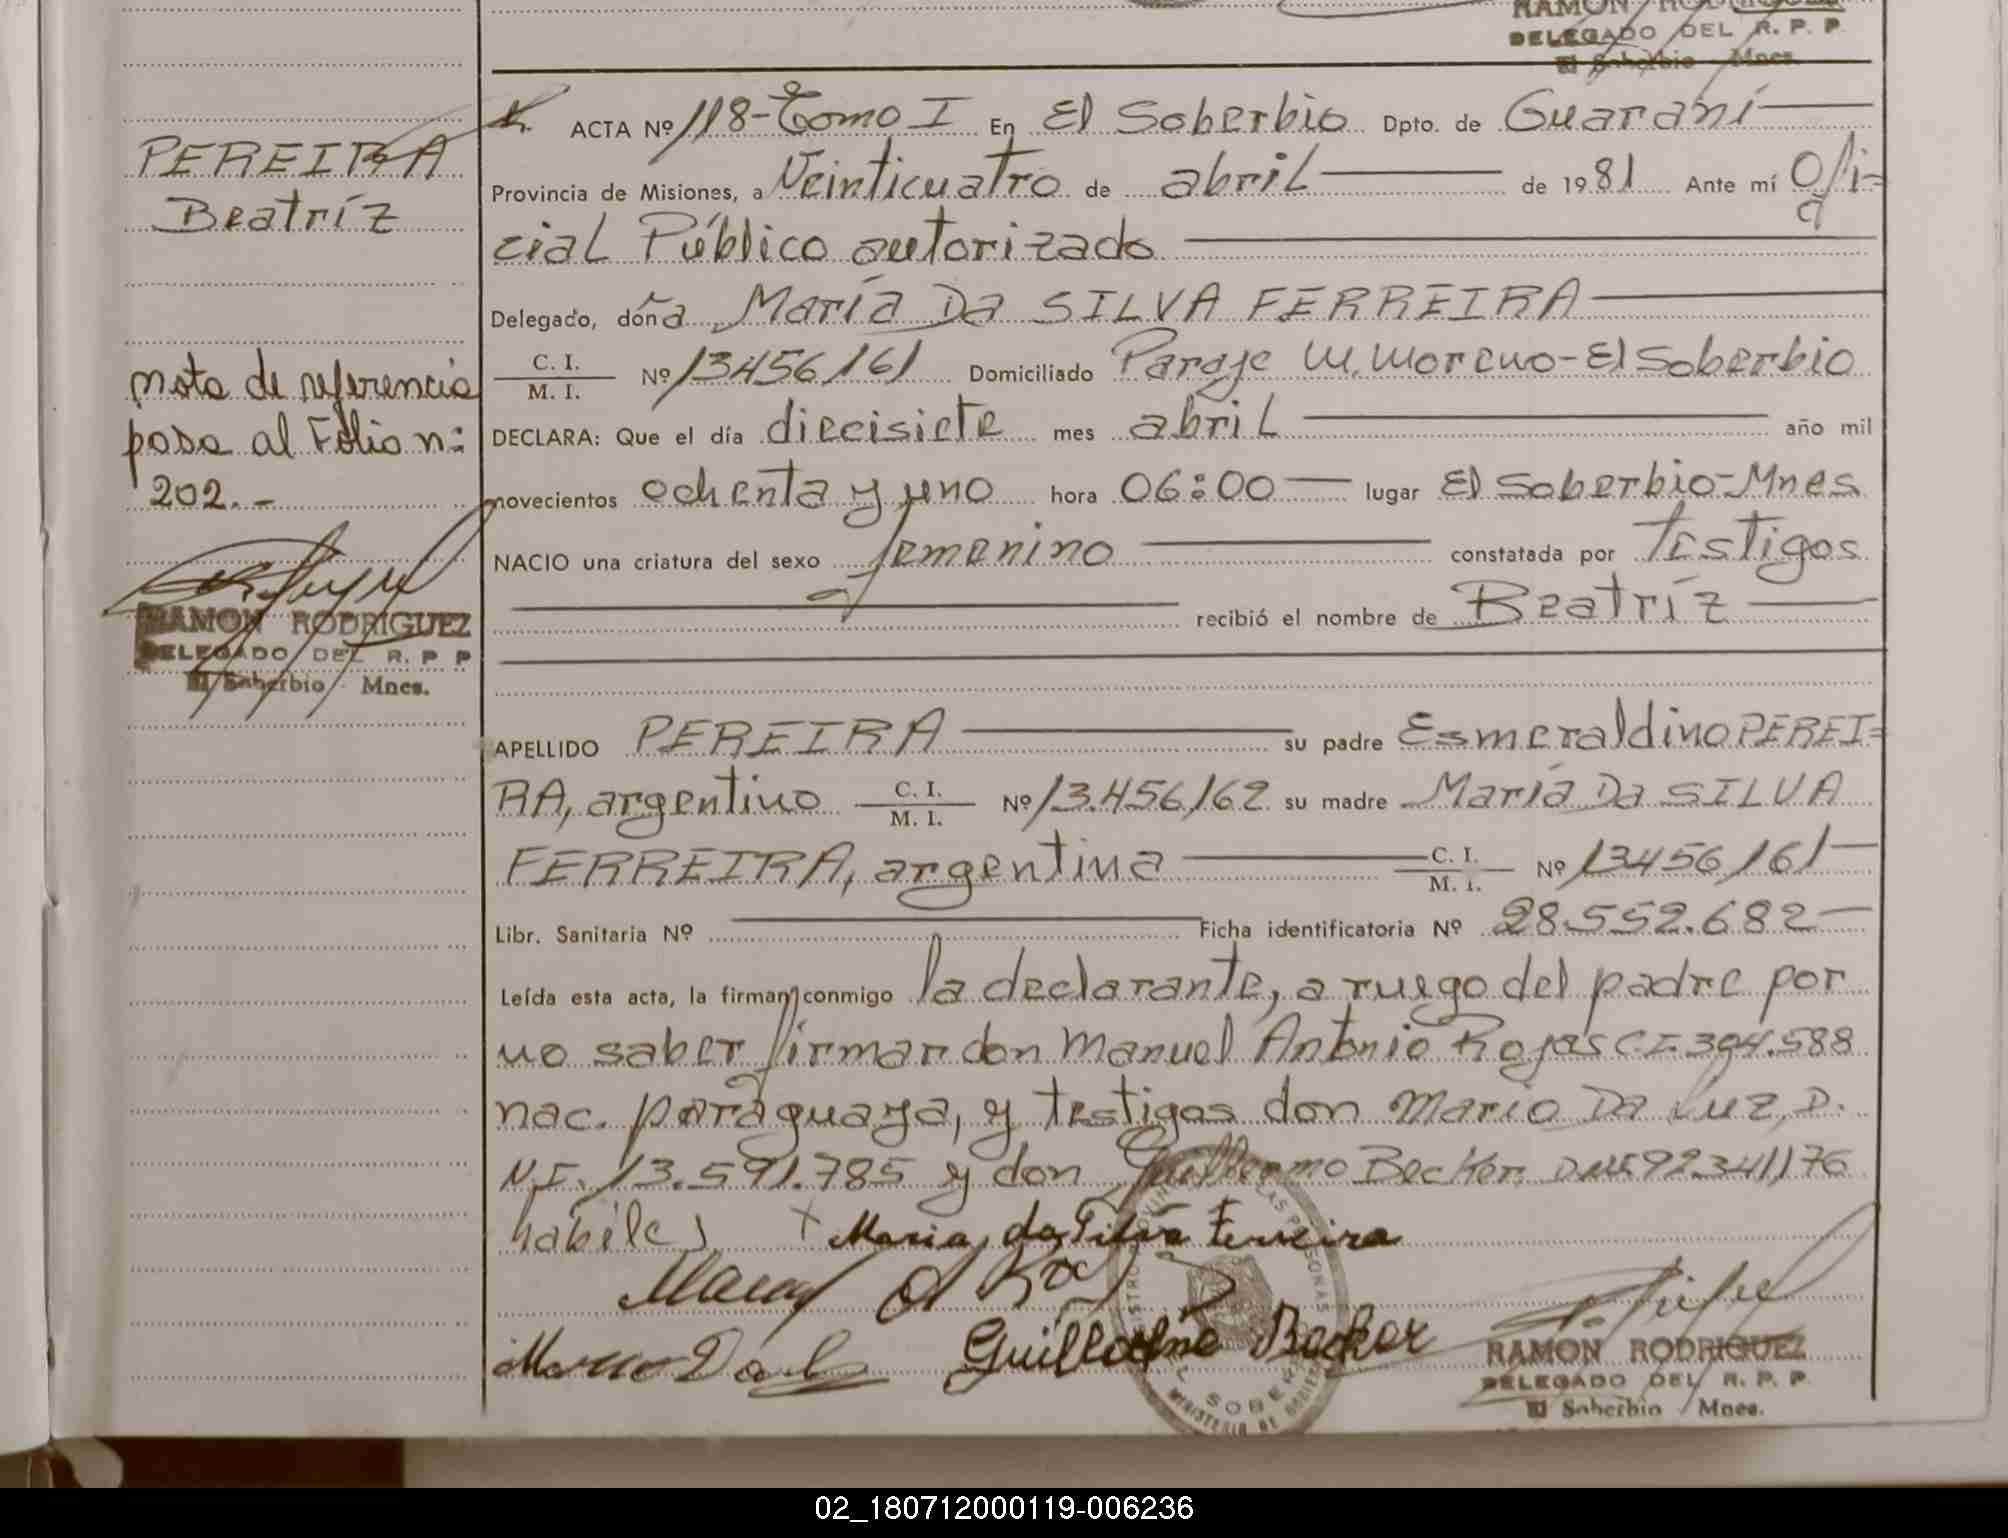 RAMON RODRIGUEZ
DELEGADO DEL R. P. P
El Soberbio Mnes.
PEREIRA
Beatríz
nota de referencia
pasa al Folio n:
202.-
RAMON RODRIGUEZ
DELEGADO DEL R. P P
El Soberbio - Mnes.
ACTA Nº 118-Tomo I En El Soberbio Dpto. de Guaraní
Provincia de Misiones, a Veinticuatro de abril de 1981 Ante mí Ofi-
cial Público autorizado
Delegado, doña María Da SILVA FERREIRA
C. I.
M. I. Nº 13456161 Domiciliado Paraje M. Moreno-El Soberbio
DECLARA: Que el día diecisiete mes abril año mil
novecientos ochenta y uno hora 06:00 lugar El Soberbio-Mnes
NACIO una criatura del sexo femenino constatada por Testigos
recibió el nombre de Beatríz
APELLIDO PEREIRA su padre Esmeraldino PEREI=
RA, argentino C. I. M. I. Nº 13.456162 su madre María Da SILVA
FERREIRA, argentina C. I. M. I. Nº 13456161
Libr. Sanitaria Nº Ficha identificatoria Nº 28.552.682
Leída esta acta, la firman conmigo la declarante, a ruego del padre por
no saber firmar don Manuel Antonio Rojas C.I. 394.588
nac. paraguaya, y testigos don Mario Da Luz, D.
N.I. 13.591.785 y don Guillermo Becker DNI 92341176
habiles
x Maria da Silva Ferreira
Guillermo Becker
RAMON RODRIGUEZ
DELEGADO DEL R. P. P
El Soberbio - Mnes.
02_180712000119-006236